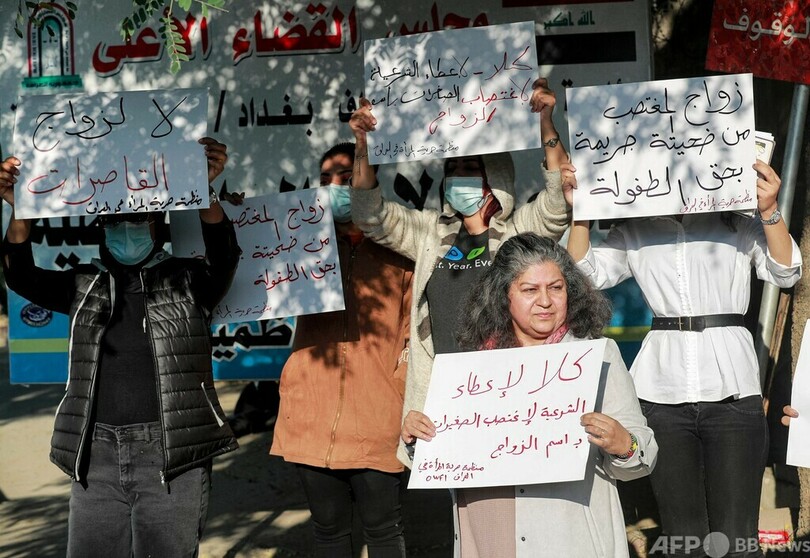 مجلس القضاء الأعلى
بغداد /
الوقوف
لا لزواج
القاصرات
منظمة حرية المرأة في العراق
زواج المغتصب
من ضحيته جريمة
بحق الطفولة
كلا - لاعطاء الشرعية
لاغتصاب القاصرات باسم
الزواج
منظمة حرية المرأة في العراق
زواج المغتصب
من ضحيتة جريمة
بحق الطفولة
منظمة حرية المرأة في العراق
كلا لإعطاء
الشرعية لإغتصاب الصغيران
باسم الزواج
منظمة حرية المرأة في
العراق OWFI
YEAR. EV
AFP BB News